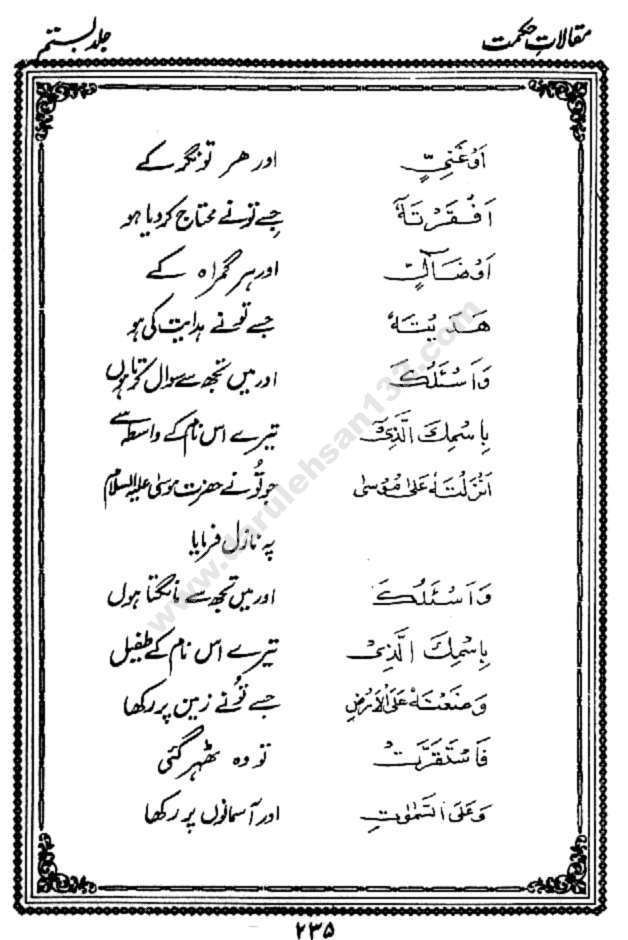 مقالاتِ حکمت جلد بستم
اَوْ غَنِیٍّ اور ھر تونگر کے
اَفْقَرْتَهٗ جِسے تونے محتاج کر دیا ہو
اَوْ ضَآلٍّ اور ہر گمراہ کے
هَدَيْتَهٗ جسے تونے ہدایت کی ہو
وَاَسْئَلُكَ اور میں تجھ سے سوال کرتا ہوں
بِاسْمِكَ الَّذِیْ تیرے اس نام کے واسطہ سے
اَنْزَلْتَهٗ عَلٰى مُوْسٰى جو تُو نے حضرت موسیٰ علیہ السلام
پہ نازل فرمایا
وَاَسْئَلُكَ اور میں تجھ سے مانگتا ہوں
بِاسْمِكَ الَّذِیْ تیرے اس نام کے طفیل
وَضَعْتَهٗ عَلَى الْاَرْضِ جسے تُونے زمین پر رکھا
فَاسْتَقَرَّتْ تو وہ ٹھہر گئی
وَعَلَى السَّمٰوٰتِ اور آسمانوں پر رکھا
۲۳۵
www.darulehsan133.com